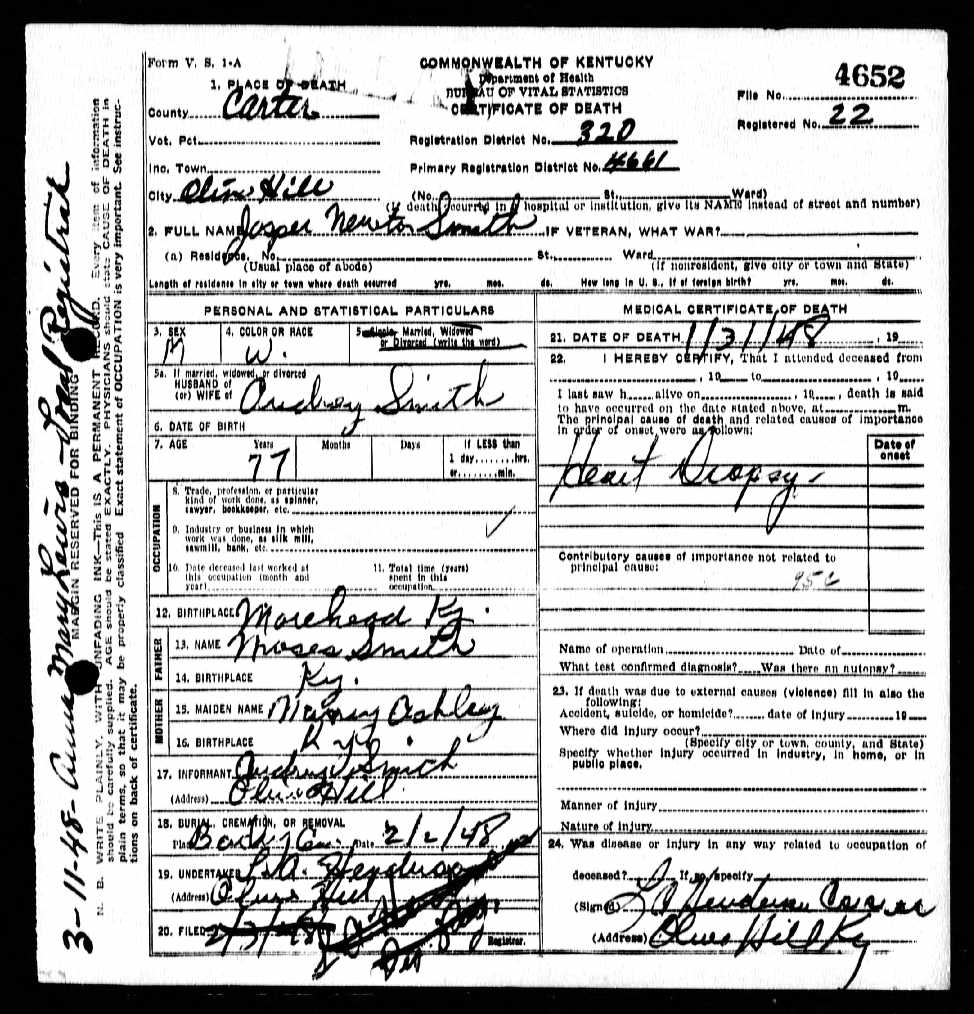 Form V. S. 1-A
COMMONWEALTH OF KENTUCKY
Department of Health
BUREAU OF VITAL STATISTICS
CERTIFICATE OF DEATH
File No. 4652
Registered No. 22
1. PLACE OF DEATH
County Carter
Vot. Pct.
Registration District No. 320
Inc. Town
Primary Registration District No. 4661
City Olive Hill (No. St., Ward)
(If death occurred in a hospital or institution, give its NAME instead of street and number)
2. FULL NAME Jasper Newton Smith IF VETERAN, WHAT WAR?
(a) Residence. No. St., Ward
(Usual place of abode) (If nonresident, give city or town and State)
Length of residence in city or town where death occurred yrs. mos. ds. How long in U. S., if of foreign birth? yrs. mos. ds.
PERSONAL AND STATISTICAL PARTICULARS
3. SEX M
4. COLOR OR RACE W.
5. Single, Married, Widowed
or Divorced (write the word)
5a. If married, widowed, or divorced
HUSBAND of
(or) WIFE of Audrey Smith
6. DATE OF BIRTH
7. AGE Years Months Days If LESS than
77 1 day,......hrs.
or......min.
OCCUPATION
8. Trade, profession, or particular
kind of work done, as spinner,
sawyer, bookkeeper, etc.
9. Industry or business in which
work was done, as silk mill,
sawmill, bank, etc.
10. Date deceased last worked at
this occupation (month and
year)
11. Total time (years)
spent in this
occupation
12. BIRTHPLACE Morehead Ky.
FATHER
13. NAME Moses Smith
14. BIRTHPLACE Ky.
MOTHER
15. MAIDEN NAME Ashley
16. BIRTHPLACE Ky.
17. INFORMANT Audrey Smith
(Address) Olive Hill
18. BURIAL, CREMATION, OR REMOVAL
Place Cem. Date 2/2/48
19. UNDERTAKER Henderson
(Address) Olive Hill
20. FILED 2/3/48
Registrar.
MEDICAL CERTIFICATE OF DEATH
21. DATE OF DEATH 1/31/48, 19
22. I HEREBY CERTIFY, That I attended deceased from
, 19 to , 19
I last saw h alive on , 19 , death is said
to have occurred on the date stated above, at m.
The principal cause of death and related causes of importance
in order of onset were as follows:
Date of
onset
Heart Dropsy
Contributory causes of importance not related to
principal cause:
95c
Name of operation Date of
What test confirmed diagnosis? Was there an autopsy?
23. If death was due to external causes (violence) fill in also the
following:
Accident, suicide, or homicide? date of injury 19
Where did injury occur?
(Specify city or town, county, and State)
Specify whether injury occurred in industry, in home, or in
public place.
Manner of injury
Nature of injury
24. Was disease or injury in any way related to occupation of
deceased? If so, specify
(Signed) Henderson Coroner
(Address) Olive Hill Ky
3-11-48- Anna Mary Lewis - Local Registrar
MARGIN RESERVED FOR BINDING
N. B. WRITE PLAINLY, WITH UNFADING INK—THIS IS A PERMANENT RECORD. Every item of information
should be carefully supplied. AGE should be stated EXACTLY. PHYSICIANS should state CAUSE OF DEATH in
plain terms, so that it may be properly classified. Exact statement of OCCUPATION is very important. See instruc-
tions on back of certificate.